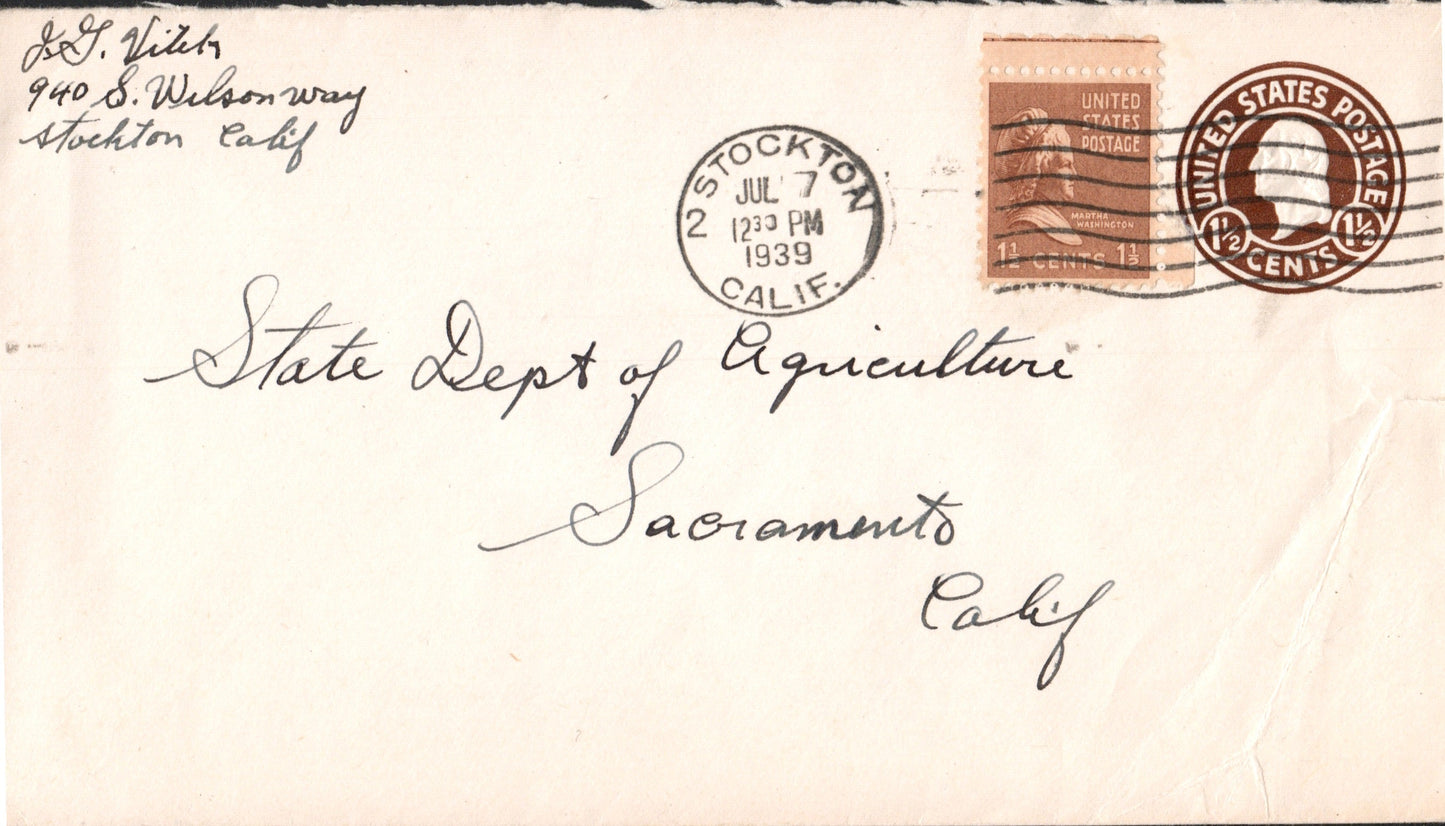 J. G. Vitch
940 S. Wilson way
Stockton Calif
2 STOCKTON CALIF.
JUL 7
12 30 PM
1939
UNITED
STATES
POSTAGE
MARTHA
WASHINGTON
1½ CENTS 1½
UNITED STATES POSTAGE
1½ CENTS 1½
State Dept of Agriculture
Sacramento
Calif